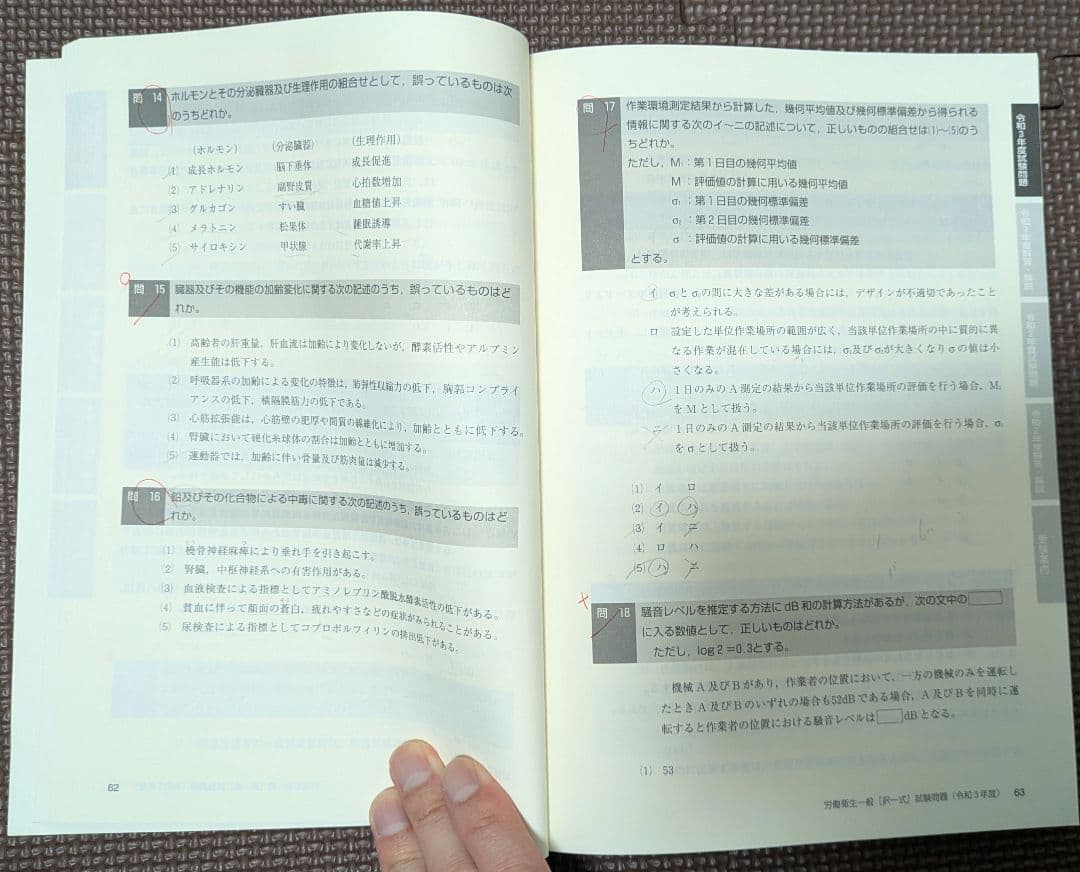 問 14 ホルモンとその分泌臓器及び生理作用の組合せとして，誤っているものは次
のうちどれか。
（ホルモン） （分泌臓器） （生理作用）
(1) 成長ホルモン 脳下垂体 成長促進
(2) アドレナリン 副腎皮質 心拍数増加
(3) グルカゴン すい臓 血糖値上昇
(4) メラトニン 松果体 睡眠誘導
(5) サイロキシン 甲状腺 代謝率上昇
問 15 臓器及びその機能の加齢変化に関する次の記述のうち，誤っているものはど
れか。
(1) 高齢者の肝重量，肝血流は加齢により変化しないが，酵素活性やアルブミン
産生能は低下する。
(2) 呼吸器系の加齢による変化の特徴は，肺弾性収縮力の低下，胸郭コンプライ
アンスの低下，横隔膜筋力の低下である。
(3) 心筋拡張能は，心筋壁の肥厚や間質の線維化により，加齢とともに低下する。
(4) 腎臓において硬化糸球体の割合は加齢とともに増加する。
(5) 運動器では，加齢に伴い骨量及び筋肉量は減少する。
問 16 鉛及びその化合物による中毒に関する次の記述のうち，誤っているものはど
れか。
(1) 橈骨神経麻痺により垂れ手を引き起こす。
(2) 腎臓，中枢神経系への有害作用がある。
(3) 血液検査による指標としてアミノレブリン酸脱水酵素活性の低下がある。
(4) 貧血に伴って顔面の蒼白，疲れやすさなどの症状がみられることがある。
(5) 尿検査による指標としてコプロポルフィリンの排出低下がある。
62
問 17 作業環境測定結果から計算した，幾何平均値及び幾何標準偏差から得られる
情報に関する次のイ〜ニの記述について，正しいものの組合せは(1)〜(5)のう
ちどれか。
ただし，M₁：第１日目の幾何平均値
M ：評価値の計算に用いる幾何平均値
σ₁：第１日目の幾何標準偏差
σ₂：第２日目の幾何標準偏差
σ ：評価値の計算に用いる幾何標準偏差
とする。
イ σ₁とσ₂の間に大きな差がある場合には，デザインが不適切であったこと
が考えられる。
ロ 設定した単位作業場所の範囲が広く，当該単位作業場所の中に質的に異
なる作業が混在している場合には，σ₁及びσ₂が大きくなりσの値は小
さくなる。
ハ １日のみのＡ測定の結果から当該単位作業場所の評価を行う場合，M₁
をＭとして扱う。
ニ １日のみのＡ測定の結果から当該単位作業場所の評価を行う場合，σ₁
をσとして扱う。
(1) イ ロ
(2) イ ハ
(3) イ ニ
(4) ロ ハ
(5) ハ ニ
問 18 騒音レベルを推定する方法に dB 和の計算方法があるが，次の文中の□
に入る数値として，正しいものはどれか。
ただし，log２＝0.3とする。
機械Ａ及びＢがあり，作業者の位置において，一方の機械のみを運転し
たときＡ及びＢのいずれの場合も52dBである場合，Ａ及びＢを同時に運
転すると作業者の位置における騒音レベルは□dBとなる。
(1) 53
労働衛生一般［択一式］試験問題（令和３年度） 63
令和３年度試験問題